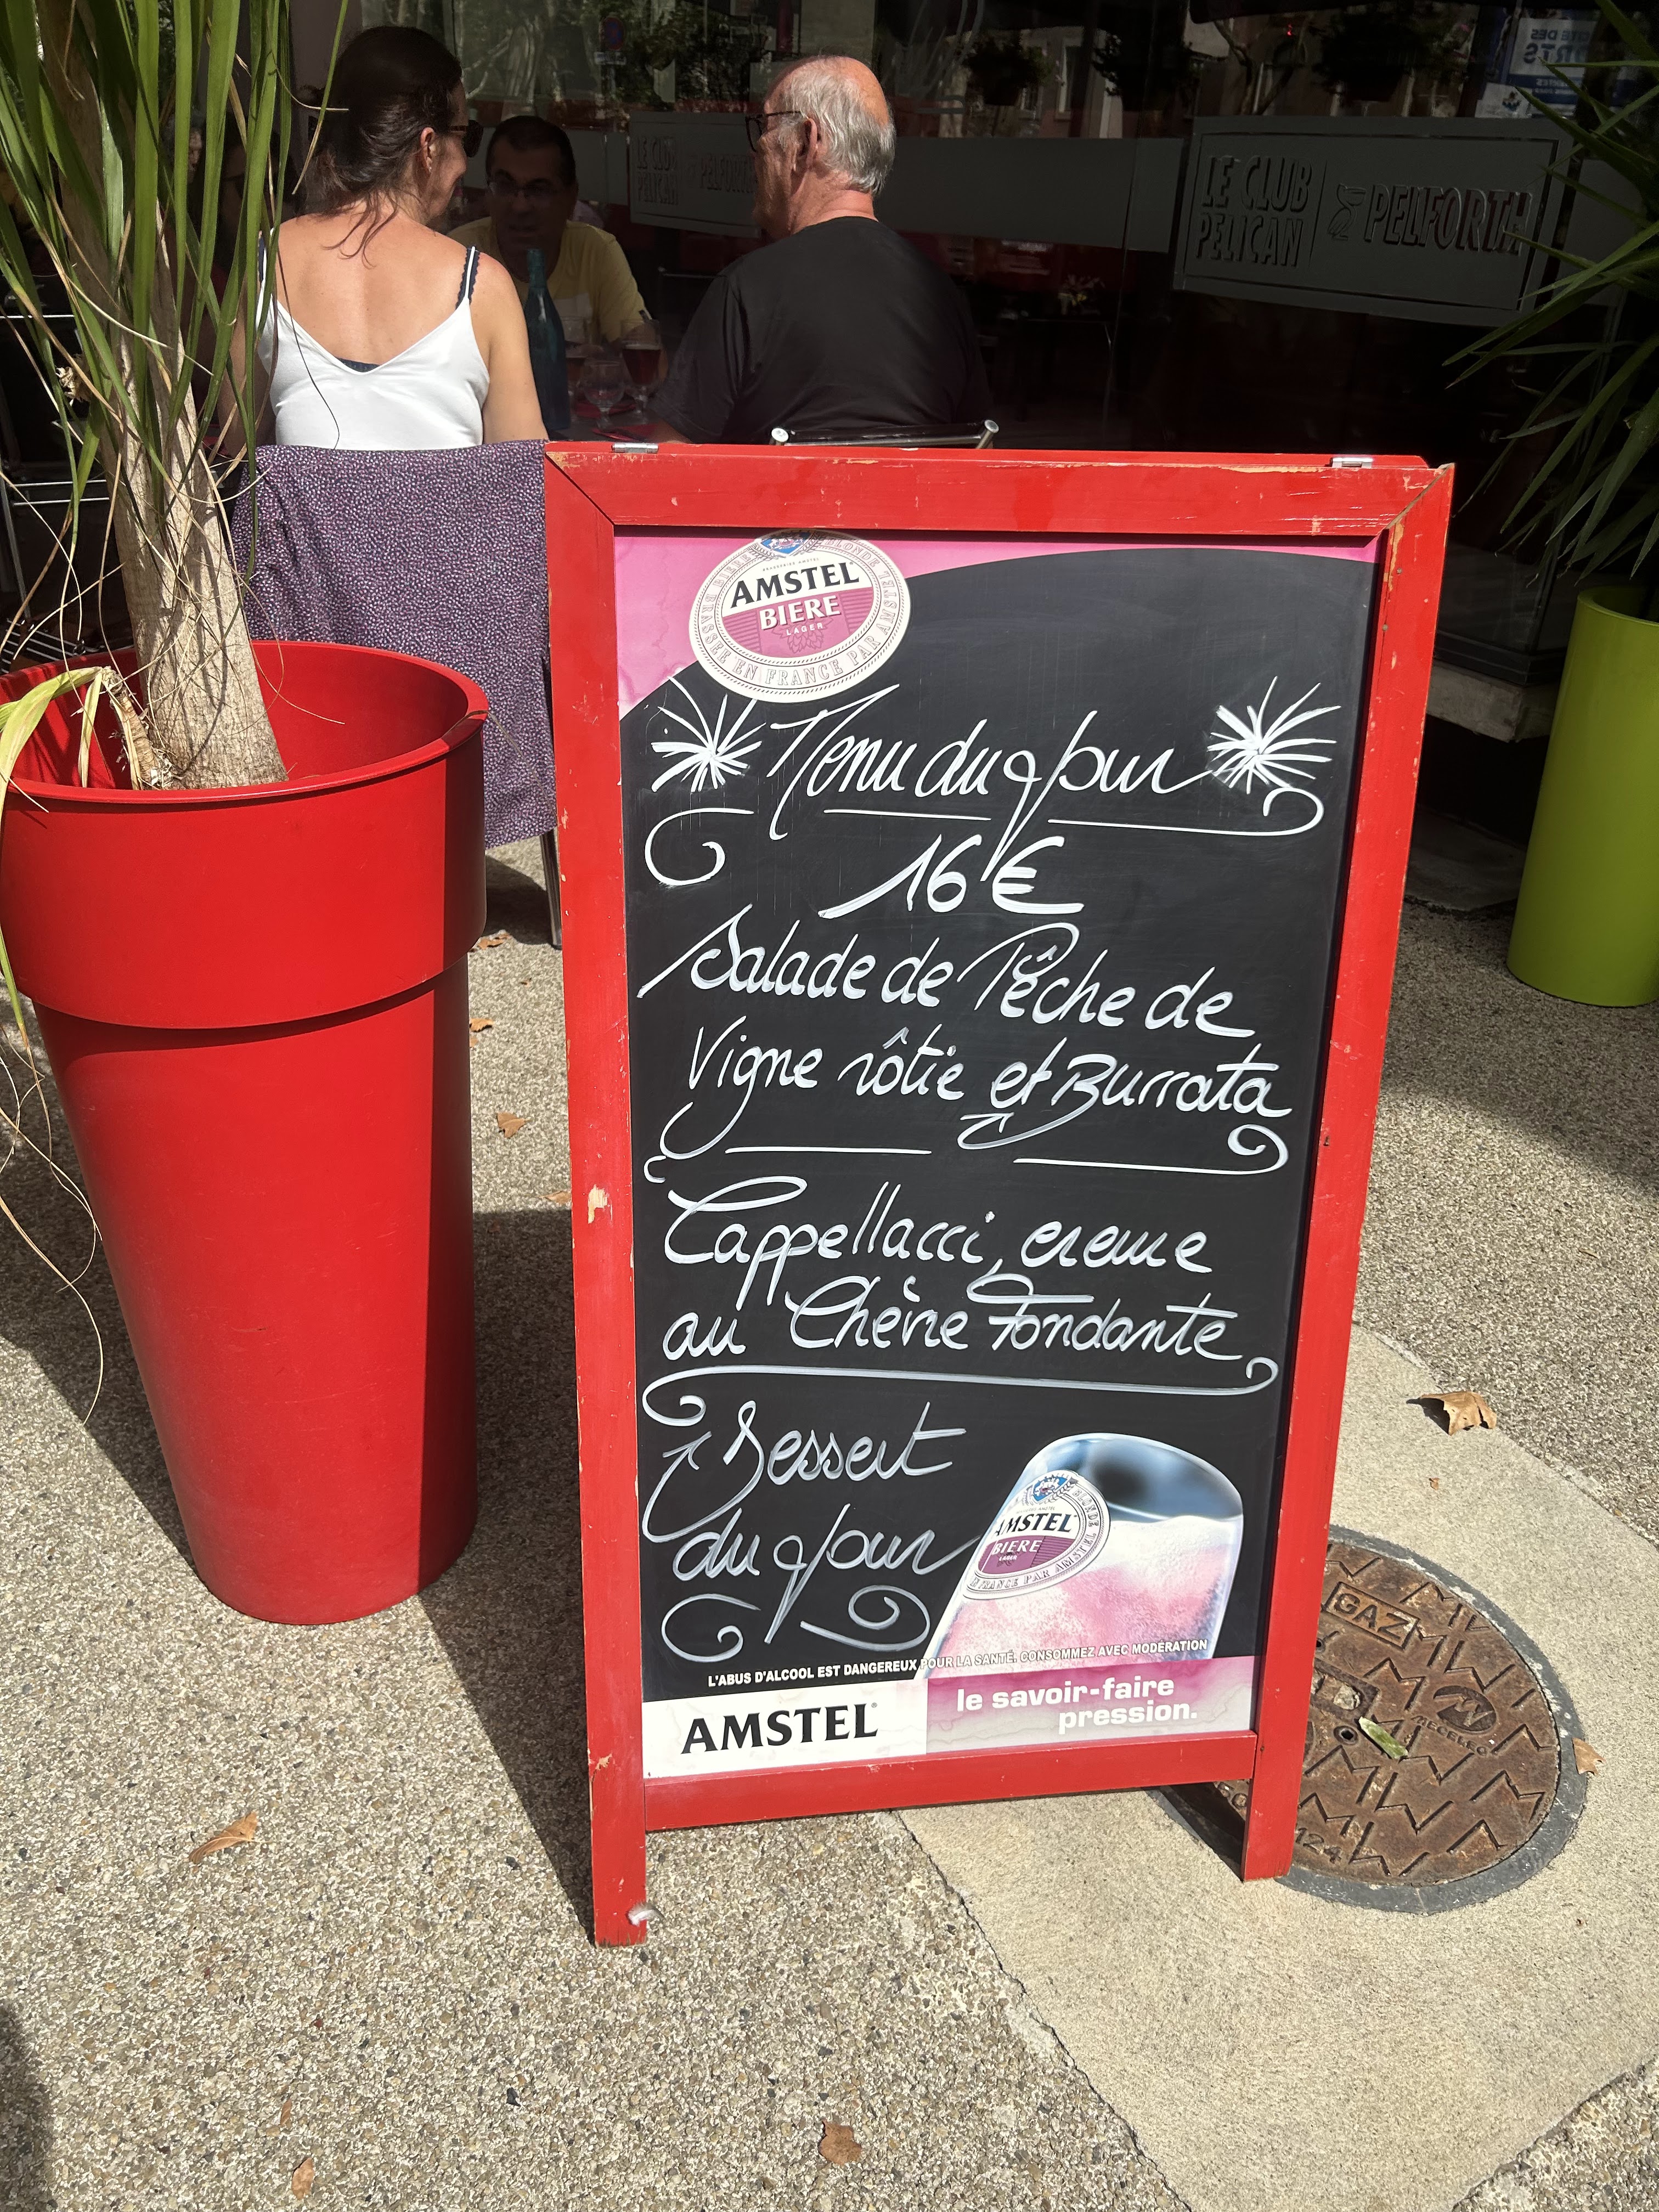 LE CLUB
PELICAN
PELFORTH
LE CLUB
PELICAN
PELFORTH
AMSTEL
BIERE
LAGER
BRASSÉE EN FRANCE PAR AMSTEL
Menu du Jour
16€
Salade de Pêche de
Vigne rôtie et Burrata
Cappellacci, creme
au Chèvre Fondante
Dessert
du Jour
AMSTEL
BIERE
LAGER
FRANCE PAR AMSTEL
L'ABUS D'ALCOOL EST DANGEREUX POUR LA SANTÉ. CONSOMMEZ AVEC MODERATION
AMSTEL
le savoir-faire
pression.
GAZ